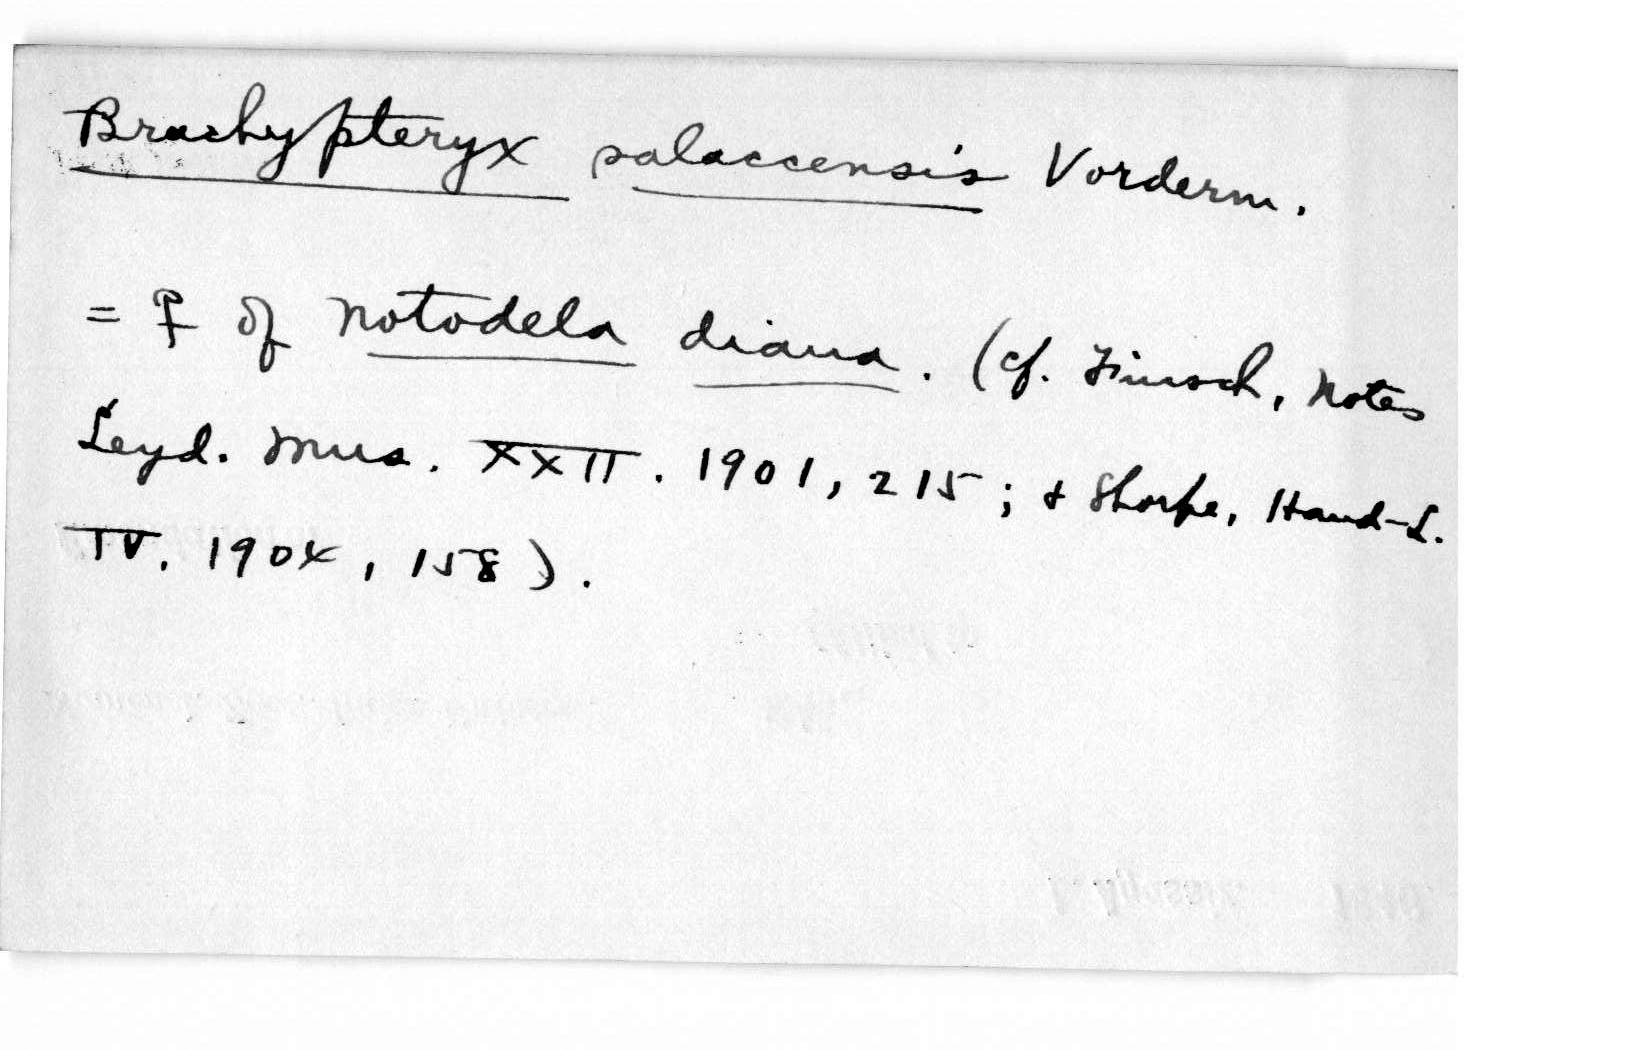 Brachypteryx salaccensis Vorderm.
= ♀ of Notodela diana. (cf. Finsch, Notes
Leyd. Mus. XXII. 1901, 215; & Sharpe, Hand-L.
IV, 1904, 158).